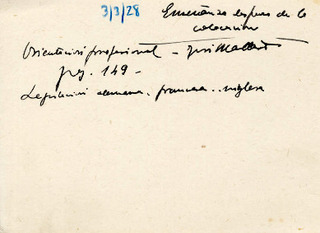 3/3/28
Enseñanza despues de la
colocacion
Orientacion profesional - José Mallart
pag. 149 -
Legislacion alemana, francesa.. inglesa